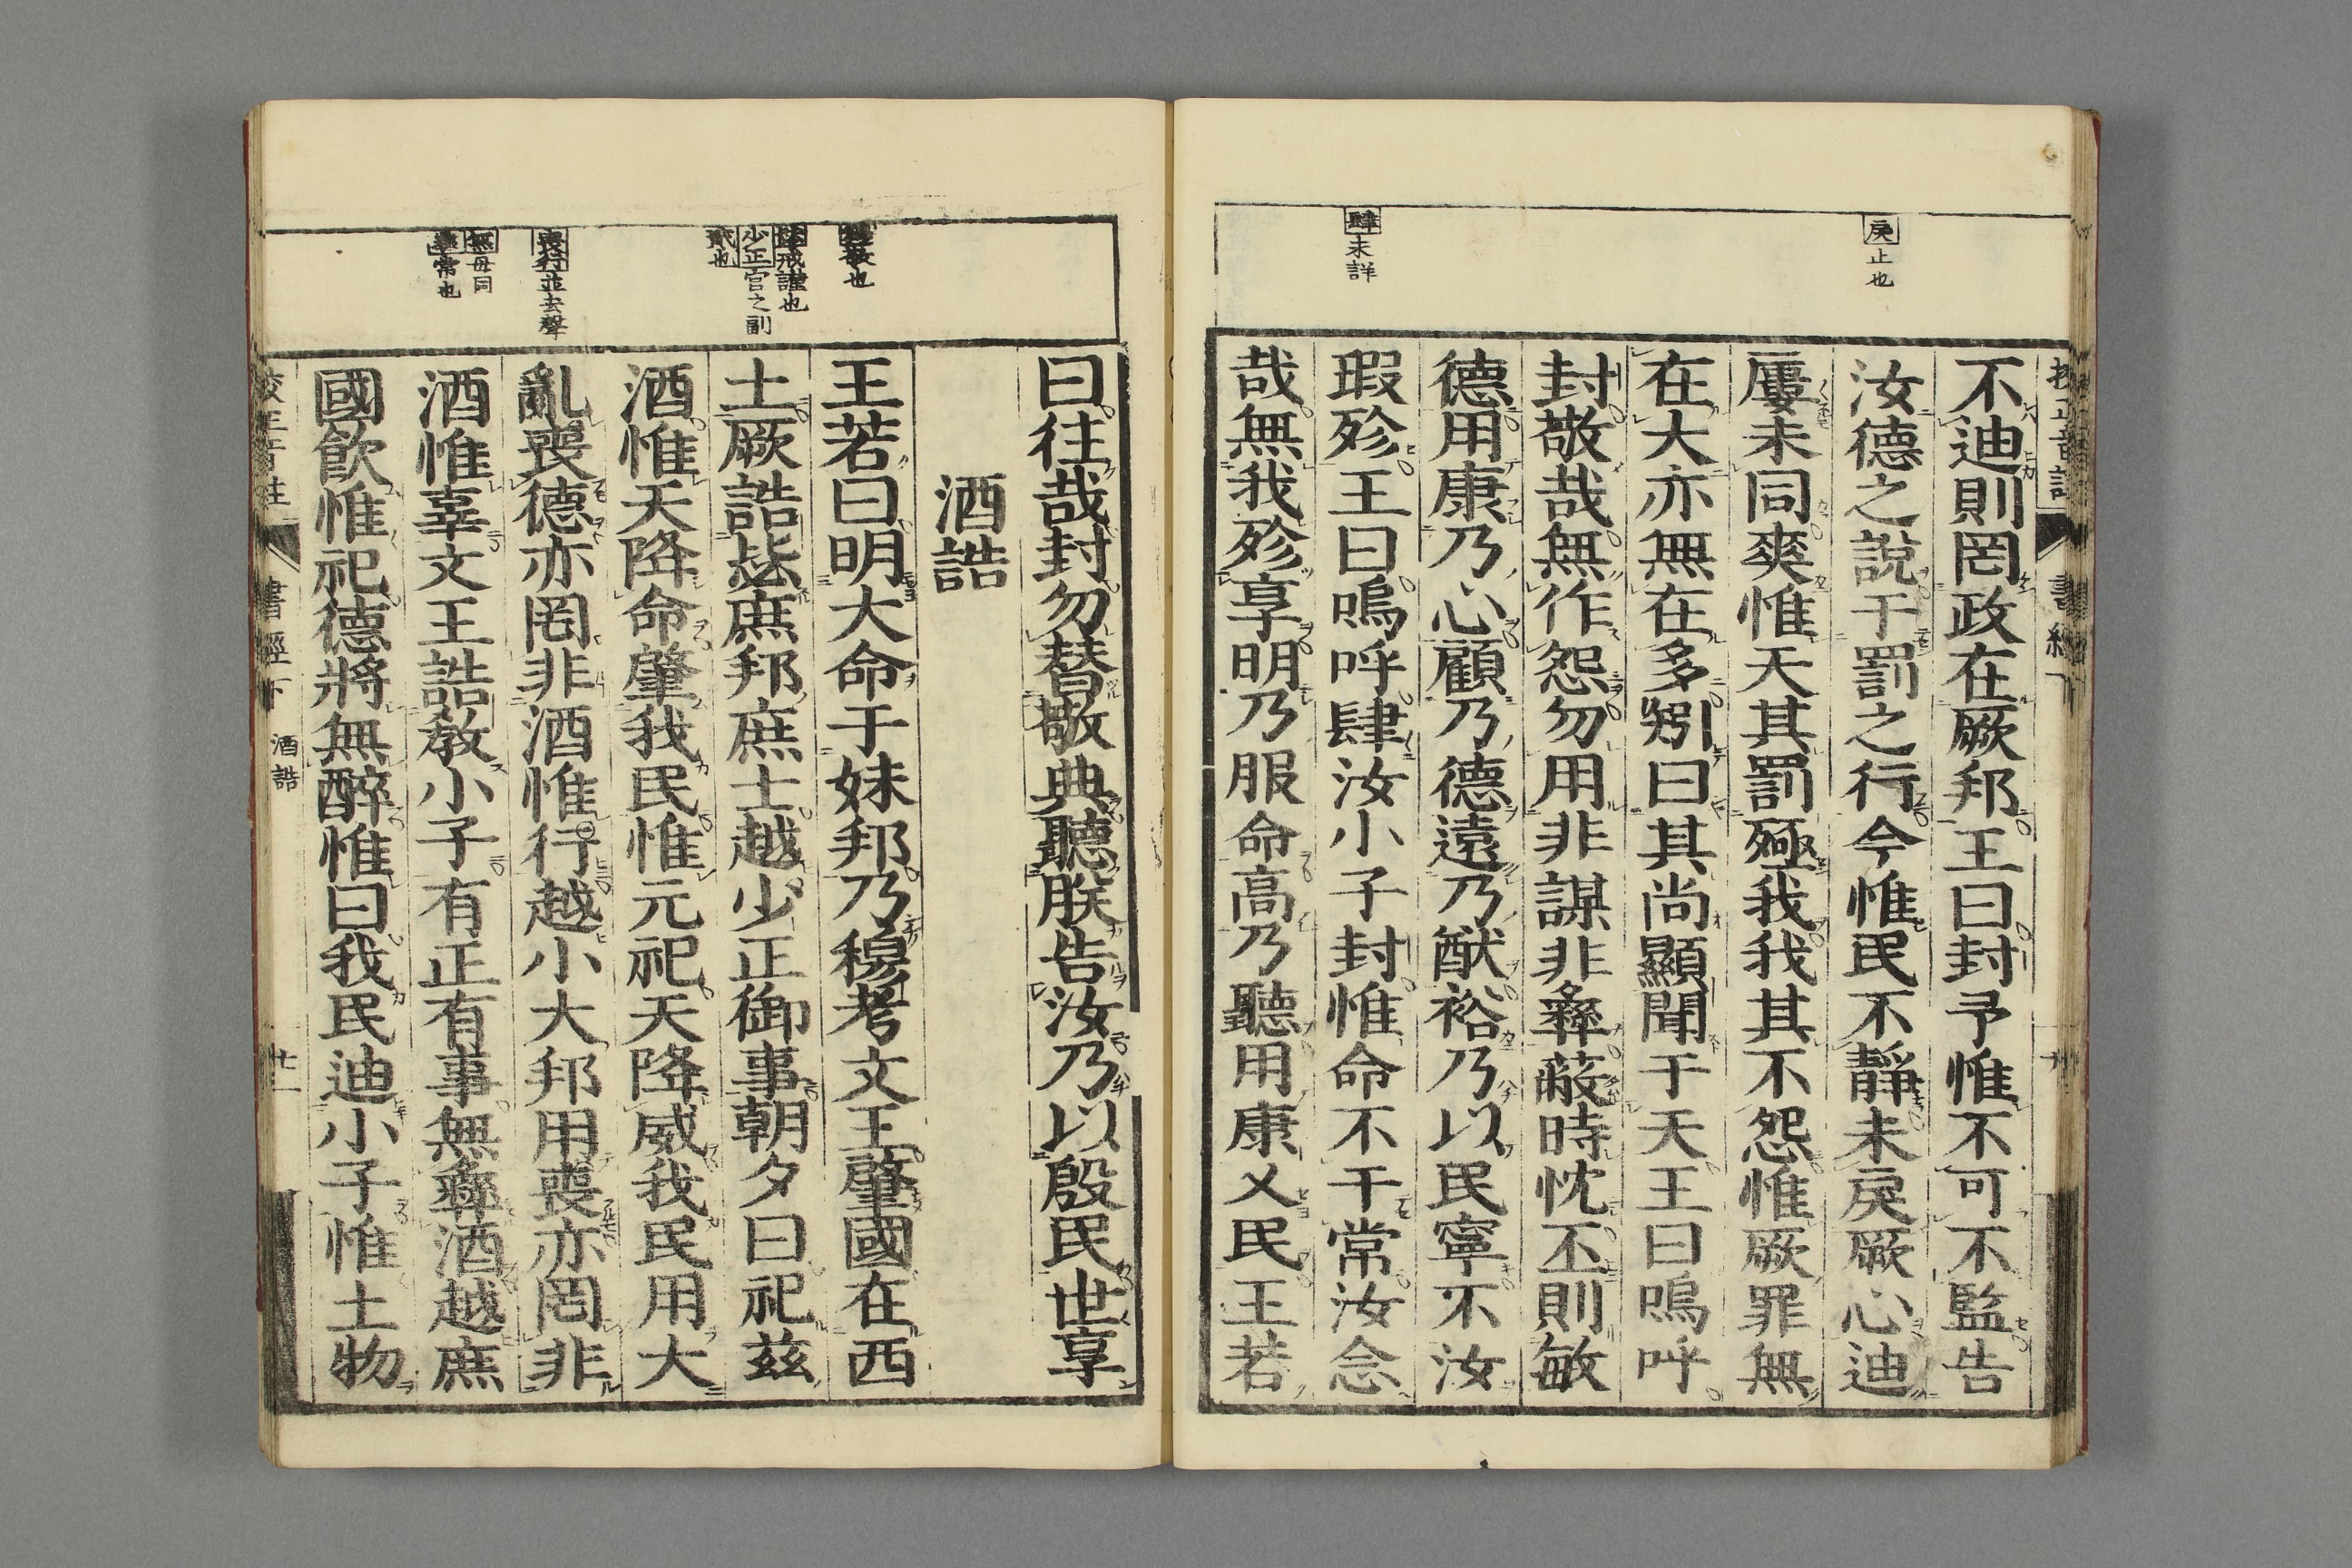 戾止也
肆未詳
不迪則罔政在厥邦王曰封予惟不可不監告
汝德之說于罰之行今惟民不靜未戾厥心迪
屢未同爽惟天其罰殛我我其不怨惟厥罪無
在大亦無在多矧曰其尚顯聞于天王曰嗚呼
封敬哉無作怨勿用非謀非彝蔽時忱丕則敏
德用康乃心顧乃德遠乃猷裕乃以民寧不汝
瑕殄王曰嗚呼肆汝小子封惟命不于常汝念
哉無我殄享明乃服命高乃聽用康乂民王若
敬也
戒謹也
少正官之副
貳也
喪行並去聲
無毋同
彝常也
曰往哉封勿替敬典聽朕告汝乃以殷民世享
酒誥
王若曰明大命于妹邦乃穆考文王肇國在西
土厥誥毖庶邦庶士越少正御事朝夕曰祀茲
酒惟天降命肇我民惟元祀天降威我民用大
亂喪德亦罔非酒惟行越小大邦用喪亦罔非
酒惟辜文王誥教小子有正有事無彝酒越庶
國飲惟祀德將無醉惟曰我民迪小子惟土物
書經下 酒誥